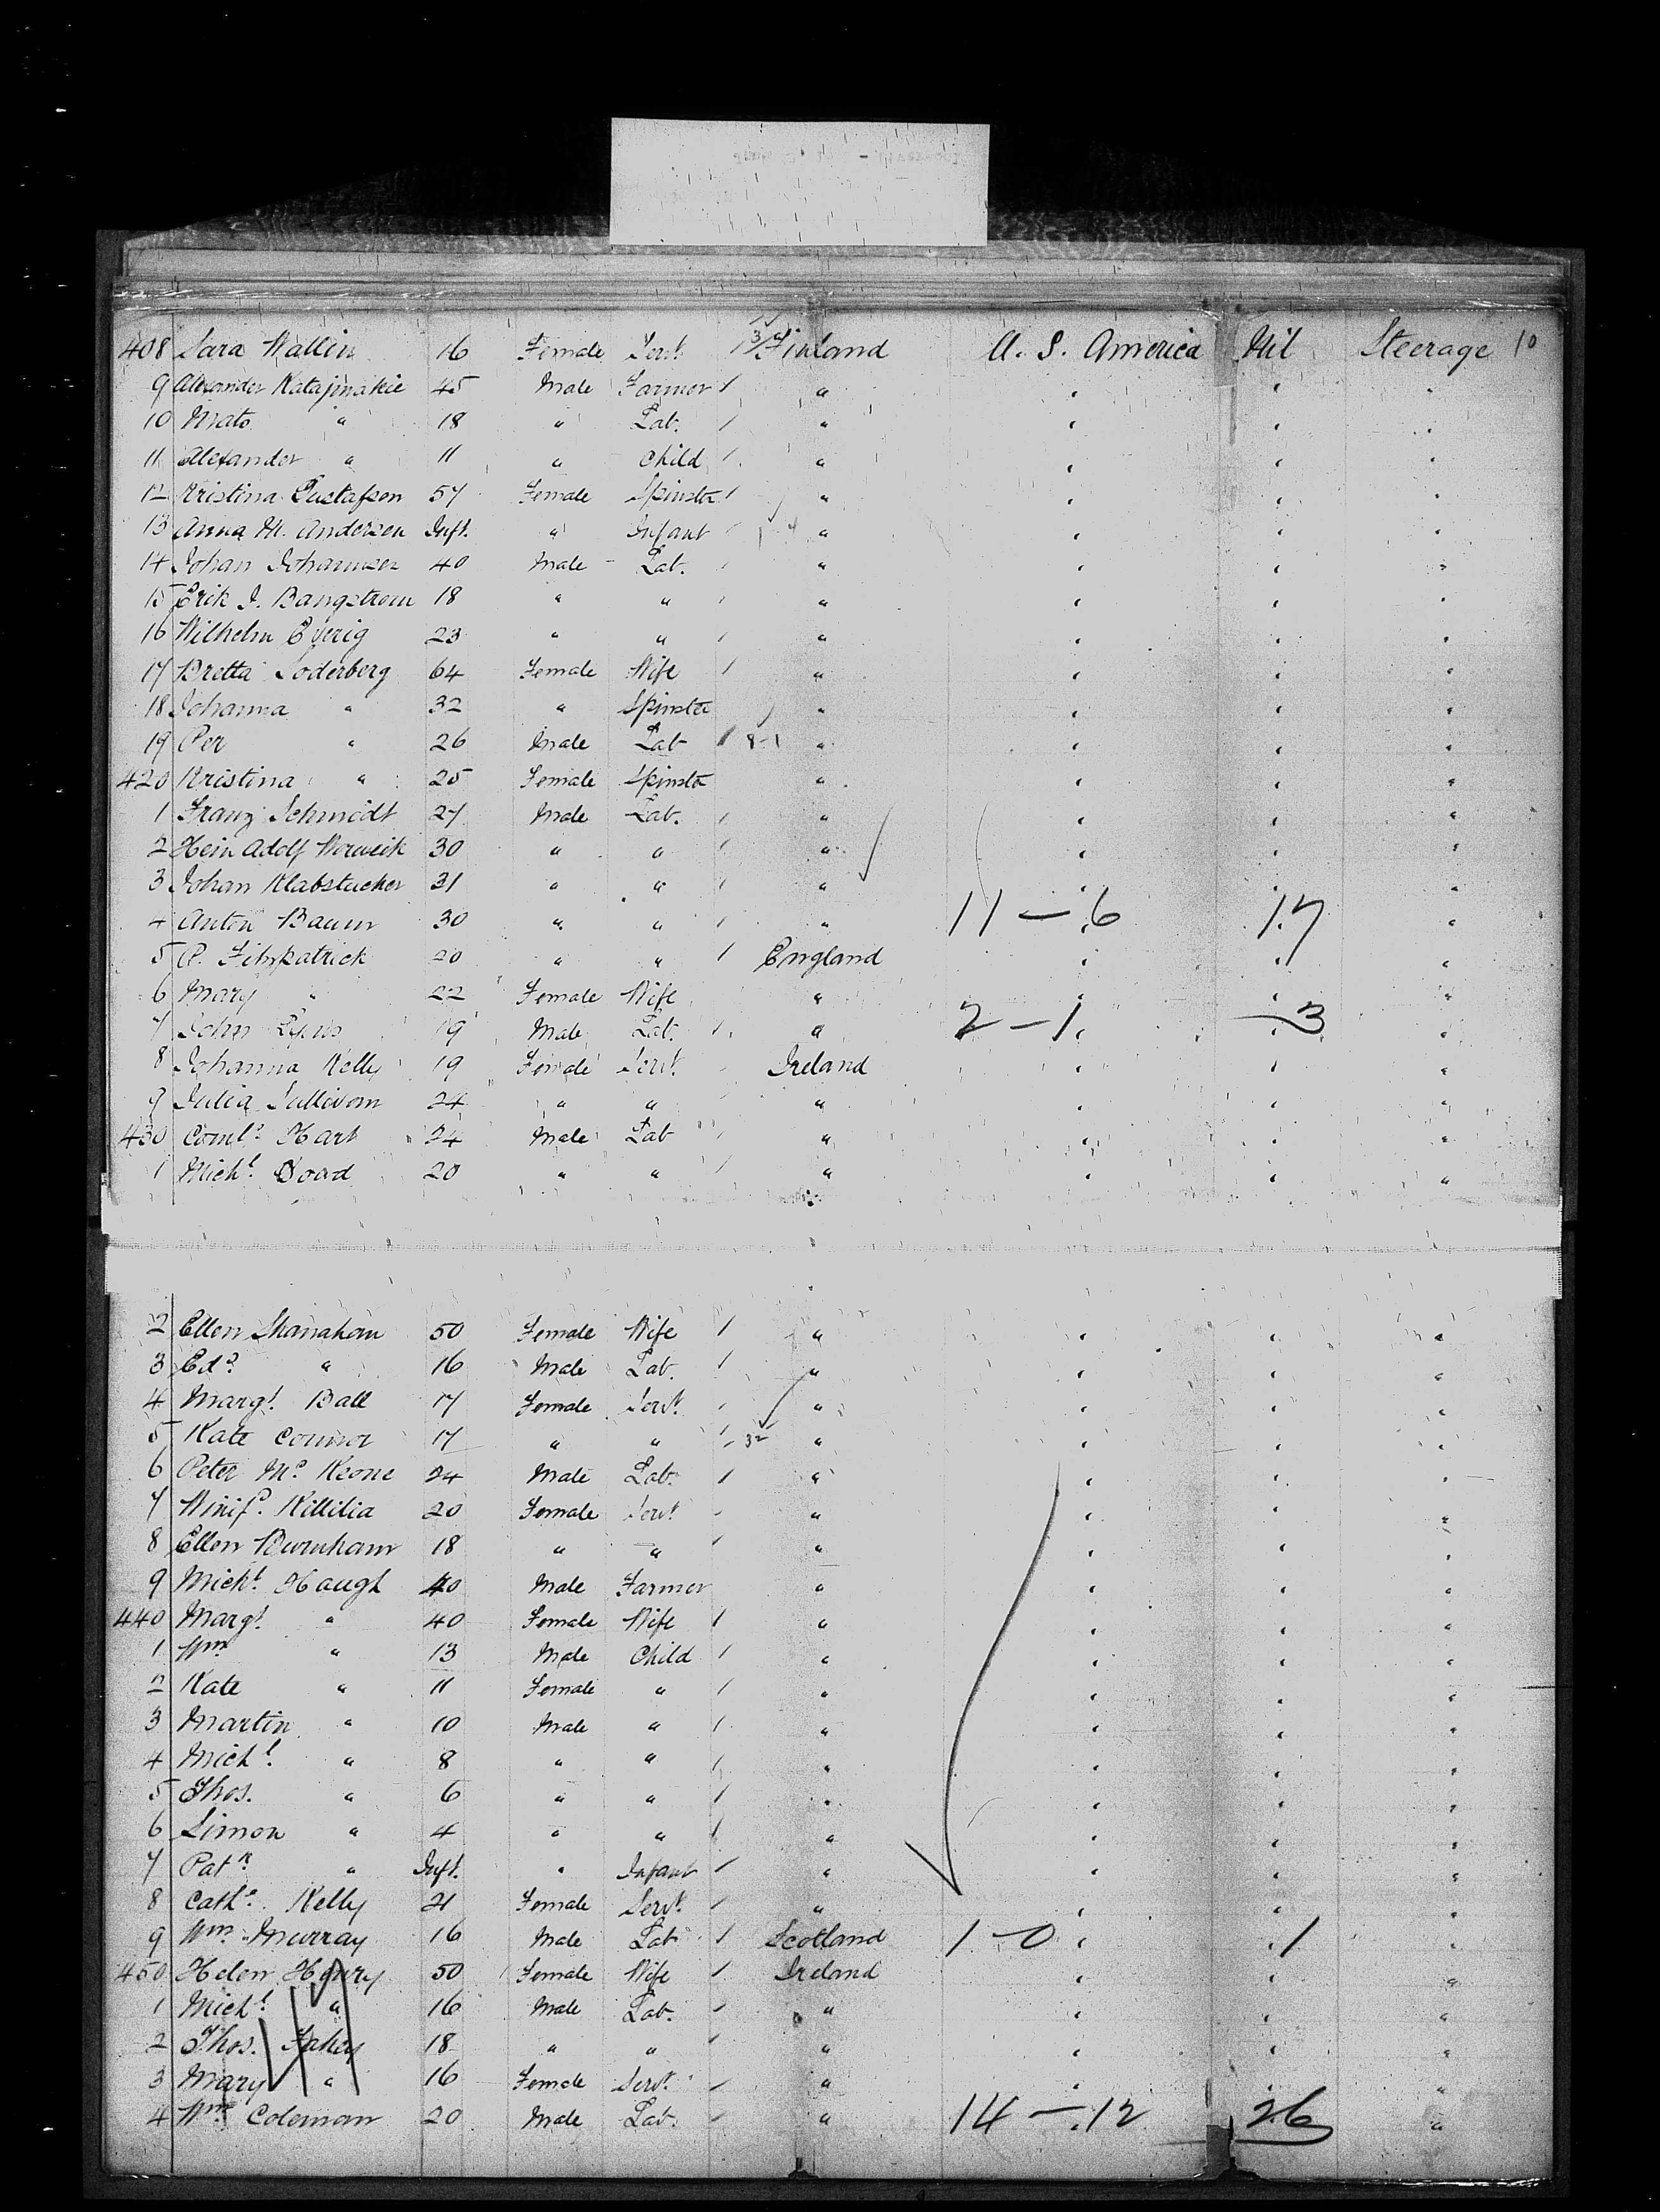 408 Sara Wallin 16 Female Servt. 1 Finland U. S. America Nil Steerage 10
9 Alexander Katajmakie 45 Male Farmer 1 " " " "
10 Mats " 18 " Lab. 1 " " " "
11 Alexander " 11 " Child 1 " " " "
12 Kristina Gustafson 57 Female Spinstr 1 " " " "
13 Anna M. Andersen Inft. " Infant 1 " " " "
14 Johan Johannsen 40 Male Lab. 1 " " " "
15 Erik J. Bangstrom 18 " " 1 " " " "
16 Wilhelm 23 " " 1 " " " "
17 Bretta Soderberg 64 Female Wife 1 " " " "
18 Johanna " 32 " Spinster " " " "
19 Per " 26 Male Lab 1 8-1 " " " "
420 Kristina " 25 Female Spinstr " " " "
1 Franz Schmidt 27 Male Lab. 1 " " " "
2 Hein Adolf 30 " " 1 " " " "
3 Johan Klabstucker 31 " " 1 " " " "
4 Anton Baum 30 " " 1 " 11 — 6 17 "
5 P. Fitzpatrick 20 " " 1 England " " "
6 Mary " 22 Female Wife " " " "
7 John 19 Male Lab. 1 " 2 — 1 3 "
8 Johanna Kelly 19 Female Servt. Ireland " " "
9 Julia Sullivan 24 " " " " " "
430 Hart 24 Male Lab 1 " " " "
1 Michl. Doad 20 " " 1 " " " "
2 Ellen Shanahan 50 Female Wife 1 " " " "
3 Edd. " 16 Male Lab. 1 " " " "
4 Margt. Ball 17 Female Servt. 1 " " " "
5 Kate Connor 17 " " 1 32 " " " "
6 Peter Mc. Keone 24 Male Lab. 1 " " " "
7 Winifd. Killilia 20 Female Servt. 1 " " " "
8 Ellen Burnham 18 " " 1 " " " "
9 Michl. Haugh 40 Male Farmer " " " "
440 Margt. " 40 Female Wife 1 " " " "
1 Wm " 13 Male Child 1 " " " "
2 Kate " 11 Female " 1 " " " "
3 Martin " 10 Male " 1 " " " "
4 Michl. " 8 " " 1 " " " "
5 Thos. " 6 " " 1 " " " "
6 Simon " 4 " " 1 " " " "
7 Patk. " Inft. " Infant 1 " " " "
8 Cathe. Kelly 21 Female Servt. 1 " " " "
9 Wm. Murray 16 Male Lab 1 Scotland 1 — 0 1 "
450 Helen Henry 50 Female Wife 1 Ireland " " "
1 Michl. " 16 Male Lab. 1 " " " "
2 Thos. Fahey 18 " " 1 " " " "
3 Mary " 16 Female Servt. 1 " " " "
4 Wm. Coleman 20 Male Lab. 1 " 14 — 12 26 "